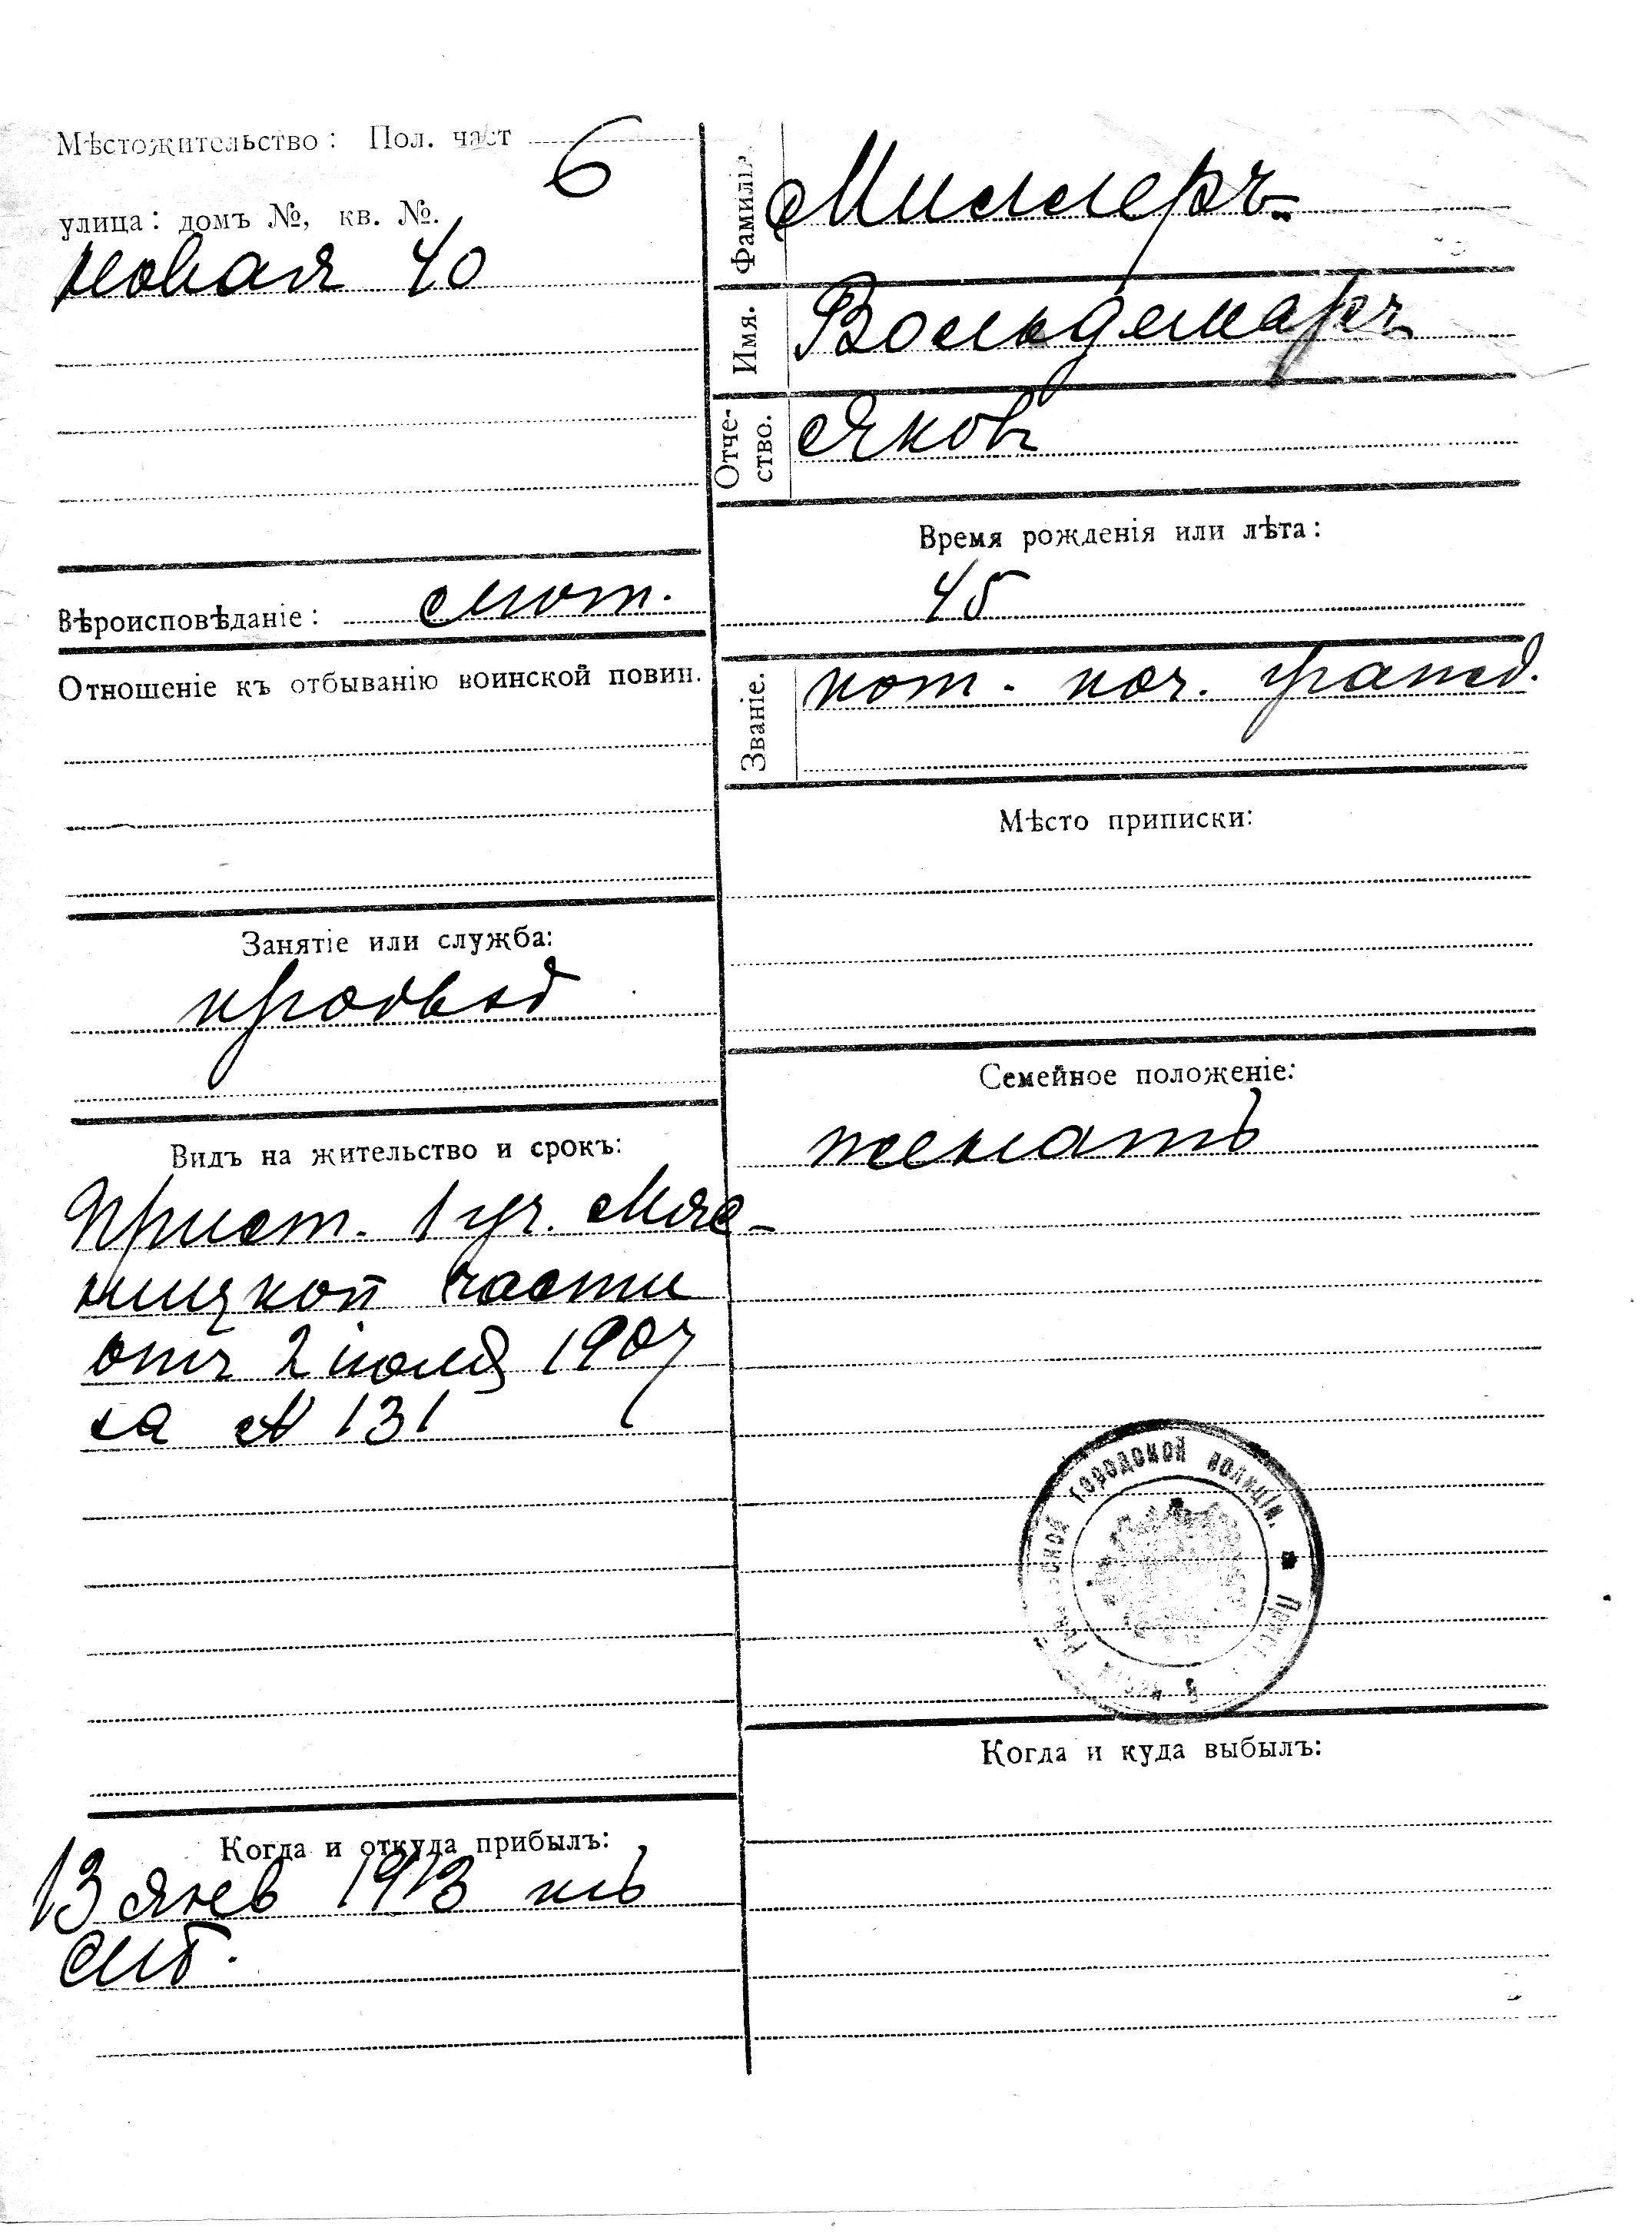 Мѣстожительство: Пол. част 6
улица: домъ №, кв. №.
Новая 40
Вѣроисповѣданіе: Лют.
Отношеніе къ отбыванію воинской повин.
Занятіе или служба:
Видъ на жительство и срокъ:
Прист. 1 уч. Мяс-
ницкой части
отъ 2 іюля 1907
за № 131
Когда и откуда прибылъ:
13 Янв 1913 изъ
СПБ.
Фамилія. Миллеръ
Имя. Вольдемаръ
Отче-
ство. Яковъ
Время рожденія или лѣта:
45
Званіе. пот. поч. гражд.
Мѣсто приписки:
Семейное положеніе:
женатъ
городской полиціи.
Когда и куда выбылъ: